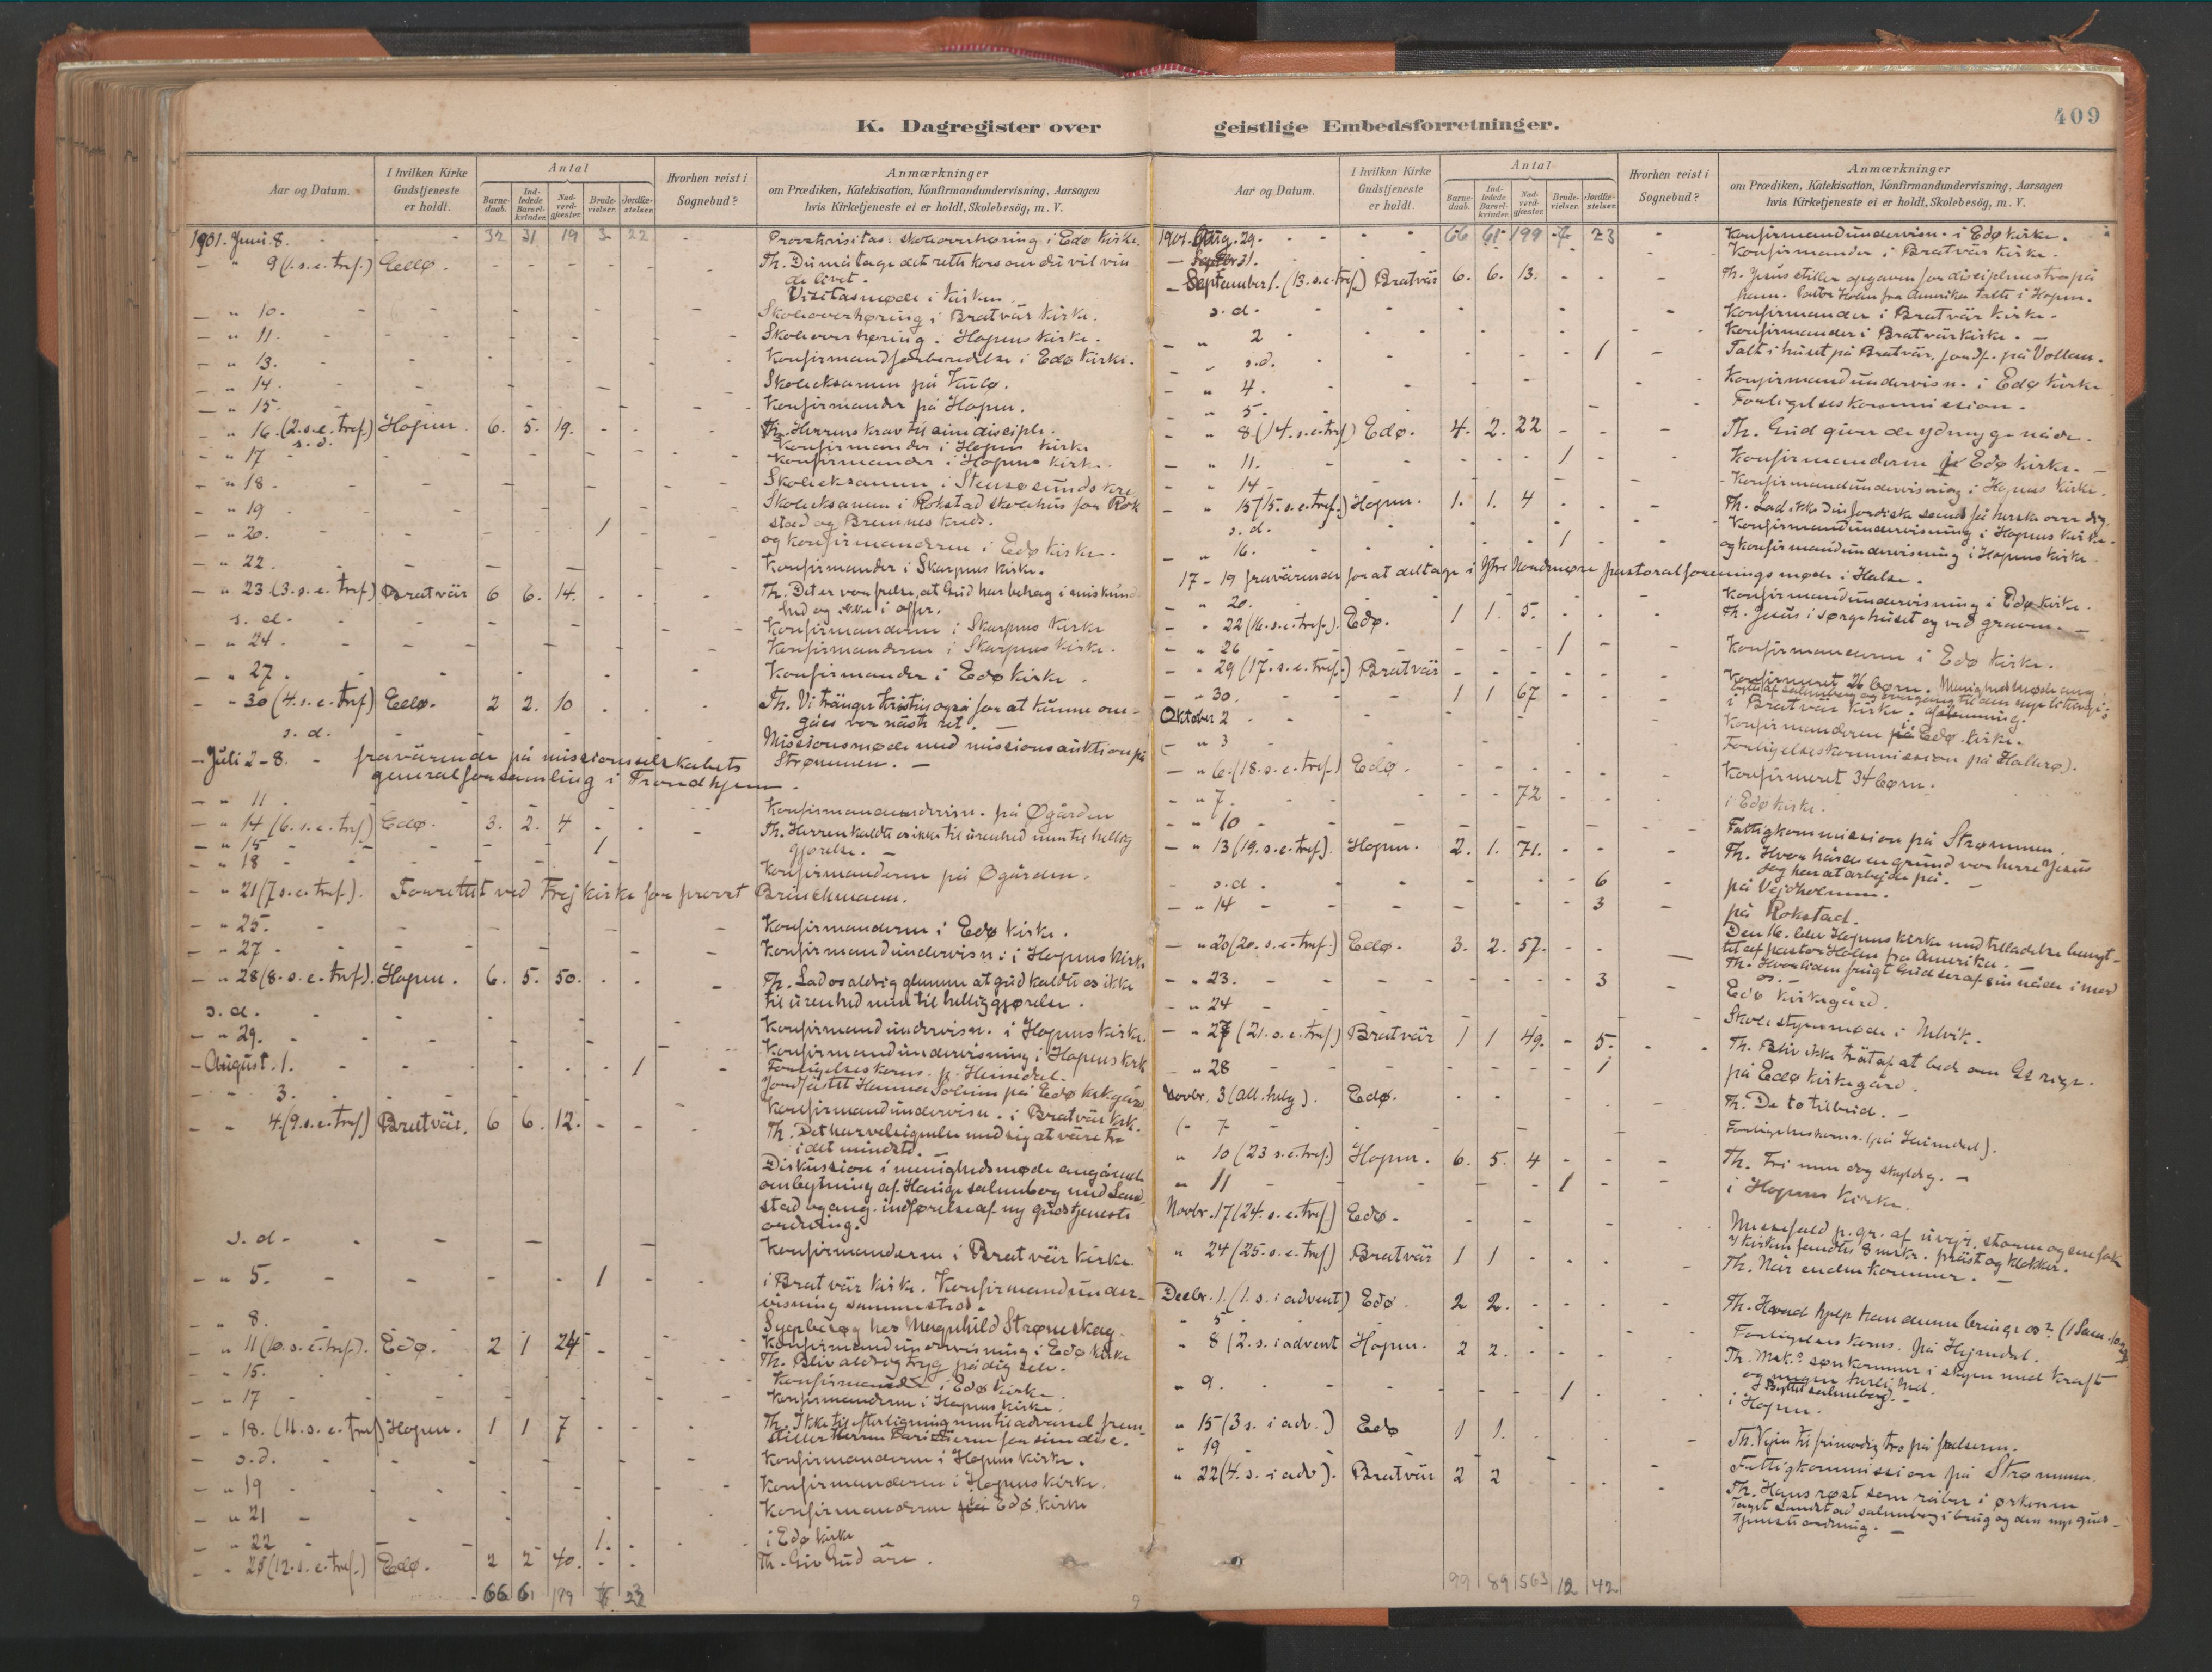 K. Dagregister over
Aar og Datum.
I hvilken Kirke Gudstjeneste er holdt.
Antal
Barne-daab.
Ind-ledede Barsel-kvinder.
Nad-verd-gjæster.
Brude-vielser.
Jordfæ-stelser.
Hvorhen reist i Sognebud?
Anmærkninger
om Prædiken, Katekisation, Konfirmandundervisning, Aarsagen
hvis Kirketjeneste ei er holdt, Skolebesög, m. V.
1901. Juni 8. 32 31 19 3 22 Provstevisitas: skoleoverhøring i Edø kirke.
" 9 (1. s. e. tref.) Edø. Th. Du må tage det rette kors om du vil vin
de livet.
Visitasmøde i kirken
" 10. Skoleoverhøring i Bratvär kirke.
" 11. Skoleoverhøring i Hopens kirke.
" 13. Konfirmandforberedelse i Edø kirke.
" 14. Skoleeksamen på Kulø.
" 15. Konfirmander på Hopen.
" 16. (2. s. e. tref.) Hopen 6. 5. 19. Th. Herrens krav til sin discipel.
s. d. Konfirmander i Hopens kirke
" 17 Konfirmander i Hopens kirke.
" 18. Skoleeksamen i Stensøsunds kre
" 19 Skoleeksamen i Rokstad skolehus for Rok
stad og Bremnes kreds.
" 20. 1 og konfirmanderne i Edø kirke.
" 22. Konfirmander i Skarpnes kirke.
" 23 (3. s. e. tref) Bratvär 6 6. 14. Th. Det er vor frelse, at Gud har behag i miskund
hed og ikke i offer.
s. d. Konfirmanderne i Skarpnes kirke
" 24 Konfirmanderne i Skarpnes kirke.
" 27. Konfirmander i Edø kirke.
" 30 (4. s. e. tref) Edø. 2 2. 10 Th. Vi tränger Kristus også for at kunne om-
gåes vor näste ret.
s. d. Missionsmøde med missionsauktion på
Strømmen.
Juli 2-8. fraværende på missionsselskabets
generalforsamling i Trondhjem.
" 11. Konfirmandundervisn. på Øgården
" 14 (6. s. e. tref) Edø. 3. 2. 4 Th. Herren kaldte os ikke til urenhed men til hellig
gjørelse.
" 15 1
" 18 Konfirmanderne på Øgården.
" 21 (7 s. e. tref.). Forrettet ved Frej kirke for provst Brinchmann.
" 25. Konfirmanderne i Edø kirke.
" 27 Konfirmandundervisn. i Hopens kirk
" 28 (8. s. e. tref). Hopen. 6. 5. 50. Th. Lad os aldrig glemme at gud kaldte os ikke
til urenhed men til helliggjørelse.
s. d. Konfirmandundervisn. i Hopens kirke.
" 29. Konfirmandundervisning i Hopens kirk
August. 1. 1 Forligelseskoms. p. Heimdal.
Jordfästet Hanna Solum på Edø kirkgård
" 3. Konfirmandundervisn. i Bratvär kirk.
" 4. (9. s. e. tref) Bratvär. 6 6. 12. Th. Det har velsignelse med sig at väre tro
i det mindste.
Diskussion i menighedsmøde angående
ombytning af Hauge salmebog med Land
stad og ang. indførelse af ny gudstjeneste
ordning.
s. d. Konfirmanderne i Bratvär kirke
" 5. 1 i Bratvär kirke. Konfirmandunder-
visning sammesteds.
" 8. Sygebesøg hos Magnhild Strømskag.
Konfirmandundervisning i Edø kirke
" 11 (10. s. e. tref). Edø. 2 1 24 Th. Bliv aldrig tryg på dig selv.
" 15. Konfirmander i Edø kirke.
" 17 Konfirmanderne i Hopens kirke.
" 18. (11. s. e. tref) Hopen. 1 1 7 Th. Ikke til efterligning men til advarsel frem-
stiller Herren Farisäerne for sine disc.
s. d. Konfirmanderne i Hopens kirke.
" 19 Konfirmanderne i Hopens kirke.
" 21 Konfirmanderne på Edø kirke
" 22 1. i Edø kirke
" 25 (12. s. e. tref.) Edø. 2 2 40. Th. Giv Gud äre.
66 61 199 23
geistlige Embedsforretninger.
409
Aar og Datum.
I hvilken Kirke Gudstjeneste er holdt.
Antal
Barne-daab.
Ind-ledede Barsel-kvinder.
Nad-verd-gjæster.
Brude-vielser.
Jordfæ-stelser.
Hvorhen reist i Sognebud?
Anmærkninger
om Prædiken, Katekisation, Konfirmandundervisning, Aarsagen
hvis Kirketjeneste ei er holdt, Skolebesög, m. V.
1901. Aug. 29. 66 61 199 23 Konfirmandundervisn. i Edø kirke.
31. Konfirmander i Bratvär kirke.
September 1. (13. s. e. tref.) Bratvär 6. 6. 13. Th. Jesus stiller opgaven for disciplenes tro på
ham. Pastor Holm fra Amerika talte i Hopen.
s. d. Konfirmander i Bratvär kirke.
" 2 Konfirmander i Bratvär kirke.
" s. d. 1 Talt i huset på Bratvär, jordf. på Vollan.
" 4. Konfirmandundervisn. i Edø kirke
" 5. Forligelseskommission.
" 8 (14. s. e. tref) Edø. 4. 2. 22 Th. Gud giver de ydmyge nåde.
" 11. 1 Konfirmanderne i Edø kirke.
" 14 Konfirmandundervisning i Hopens kirke.
" 15 (15. s. e. tref.) Hopen. 1. 1. 4 Th. Lad ikke din jordiske sands få herske over dig.
s. d. Konfirmandundervisning i Hopens kirke.
" 16. 1 og konfirmandundervisning i Hopens kirke.
17-19 fraværende for at deltage i Ytre Nordmøre pastoralforenings møde i Halse.
" 20. Konfirmandundervisning i Edø kirke.
" 22 (16. s. e. tref.). Edø. 1 1. 5. Th. Jesus i sørgehuset og ved graven.
" 26 1 Konfirmanderne i Edø kirke.
" 29 (17. s. e. tref.) Bratvär Konfirmeret 26 børn. Menighedsmøde ang.
" 30. 1 1 67 i Bratvär kirke.
Oktober 2 Konfirmanderne i Edø kirke.
" 3 Forligelseskommission på Hallerø).
" 6. (18. s. e. tref.) Edø. Konfirmeret 34 børn.
" 7. 72 i Edø kirke.
" 10 Fattigkommission på Strømmen.
" 13 (19. s. e. tref.). Hopen. 2. 1. 71. Th. Hvor hård en grund vor herre Jesus
dog han at arbejde på.
s. d. 6 på Vejholmen.
" 14 3 på Rokstad.
Den 16. blev Hopens kirke med tilladelse benyt-
tet af pastor Holm fra Amerika.
" 20 (20. s. e. tref.) Edø. 3. 2. 57. Th. Hvor liden frugt Gud ser af sin nåde imod
os.
" 23. 3 Edø kirkegård.
" 24 Skolestyremøde i Ulvik.
" 27 (21. s. e. tref) Bratvär 1 1 49. 5. Th. Bliv ikke trät af at bede om Gs rige.
" 28 1 på Edø kirkegård.
Novbr. 3 (All. helg). Edø. Th. De to tilbud.
" 7 Forligelseskoms. (på Heimdal).
" 10 (23 s. e. tref.) Hopen. 6. 5. 4 Th. Fri men dog skyldig.
" 11 1 i Hopens kirke.
Novbr. 17 (24. s. e. tref.) Edø. Messefald p. gr. af uvejr, storm og snefok
I kirken fandtes 8 mskr. präst og klokker.
" 24 (25. s. e. tref) Bratvär 1 1 Th. Når enden kommer.
Decbr. 1. (1. s. i advent) Edø. 2 2. Th. Hvad hjelp kan denne bringe os? (1 Sam. 10
" 5 Forligelses koms. på Hejmdal.
" 8 (2. s. i advent Hopen. 2 2. Th. Msk.s søn kommer i skyen med kraft
og megen herlighed.
Byttet salmebog.
" 9. 1 i Hopen.
" 15 (3 s. i adv.) Edø 1 1. Th. Vejen til frimodig tro på frelseren.
" 19 Fattigkommission på Strømmen
" 22 (4. s. i adv). Bratvär 2 2 Th. Hans røst som råber i ørkenen
Taget Landstad salmebog i brug og den nye guds-
tjenesteordning.
99 89 563 12 42.